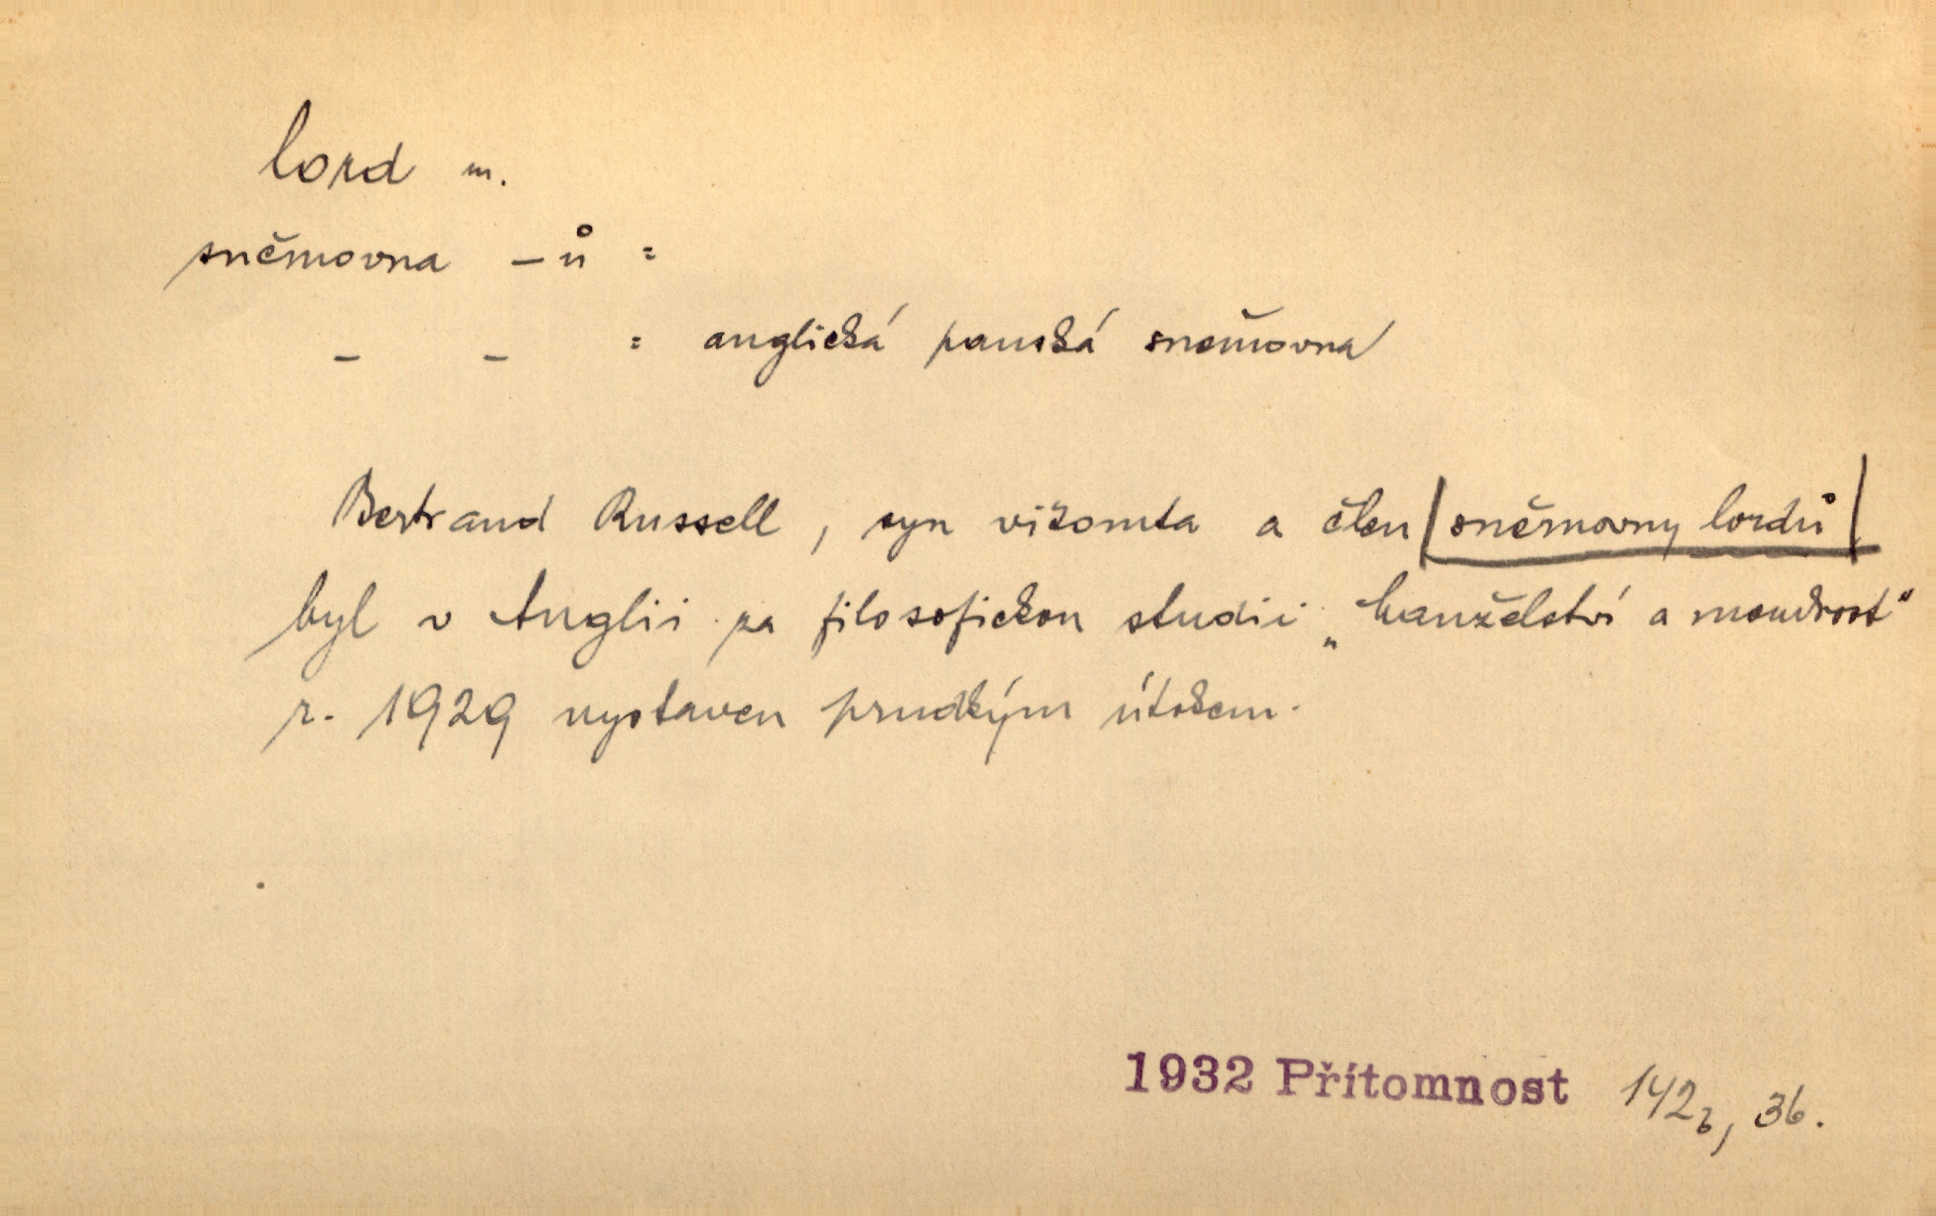 lord m.
sněmovna -ů =
- - = anglická panská sněmovna
Bertrand Russell, syn vikomta a člen sněmovny lordů
byl v Anglii za filosofickou studii „Manželství a moudrost“
r. 1929 vystaven prudkým útokem.
1932 Přítomnost 142b, 36.